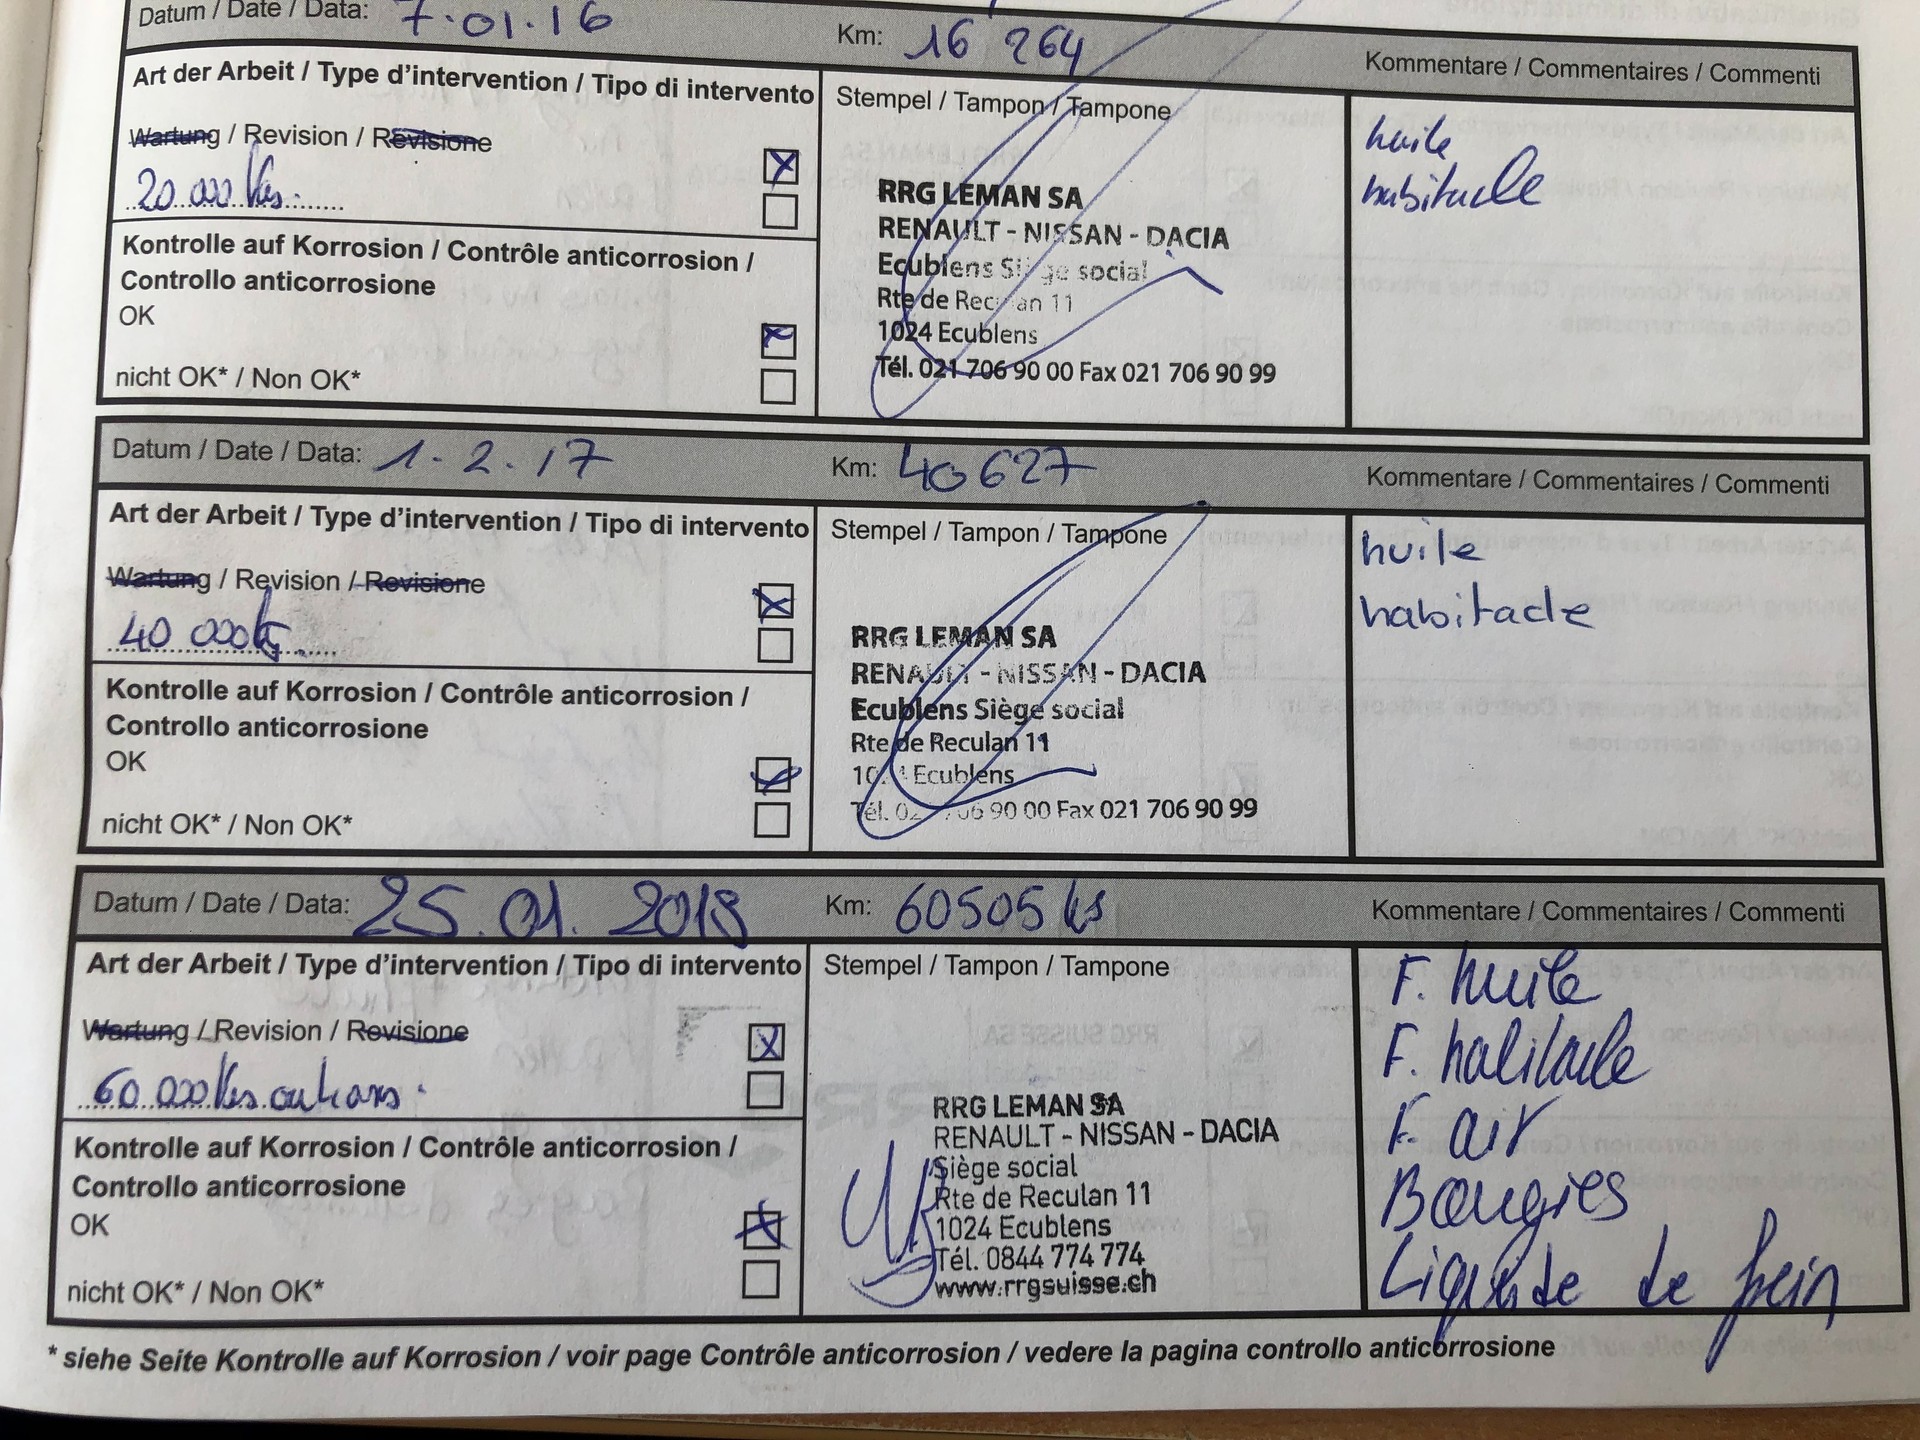 Datum / Date / Data: 7.01.16 Km: 16 264 Kommentare / Commentaires / Commenti
Art der Arbeit / Type d'intervention / Tipo di intervento
Wartung / Revision / Revisione
20 000 kms.
Kontrolle auf Korrosion / Contrôle anticorrosion /
Controllo anticorrosione
OK
nicht OK* / Non OK*
Stempel / Tampon / Tampone
RRG LEMAN SA
RENAULT - NISSAN - DACIA
Ecublens Siège social
Rte de Reculan 11
1024 Ecublens
Tél. 021 706 90 00 Fax 021 706 90 99
huile
habitacle
Datum / Date / Data: 1.2.17 Km: 40627 Kommentare / Commentaires / Commenti
Art der Arbeit / Type d'intervention / Tipo di intervento
Wartung / Revision / Revisione
40 000
Kontrolle auf Korrosion / Contrôle anticorrosion /
Controllo anticorrosione
OK
nicht OK* / Non OK*
Stempel / Tampon / Tampone
RRG LEMAN SA
RENAULT - NISSAN - DACIA
Ecublens Siège social
Rte de Reculan 11
Ecublens
Tél. 90 00 Fax 021 706 90 99
huile
habitacle
Datum / Date / Data: 25.01.2018 Km: 60505 ks Kommentare / Commentaires / Commenti
Art der Arbeit / Type d'intervention / Tipo di intervento
Wartung / Revision / Revisione
60 000 kms ou 4 ans.
Kontrolle auf Korrosion / Contrôle anticorrosion /
Controllo anticorrosione
OK
nicht OK* / Non OK*
Stempel / Tampon / Tampone
RRG LEMAN SA
RENAULT - NISSAN - DACIA
Siège social
Rte de Reculan 11
1024 Ecublens
Tél. 0844 774 774
www.rrgsuisse.ch
F. huile
F. habitacle
F. air
Bougies
Liquide de frein
* siehe Seite Kontrolle auf Korrosion / voir page Contrôle anticorrosion / vedere la pagina controllo anticorrosione